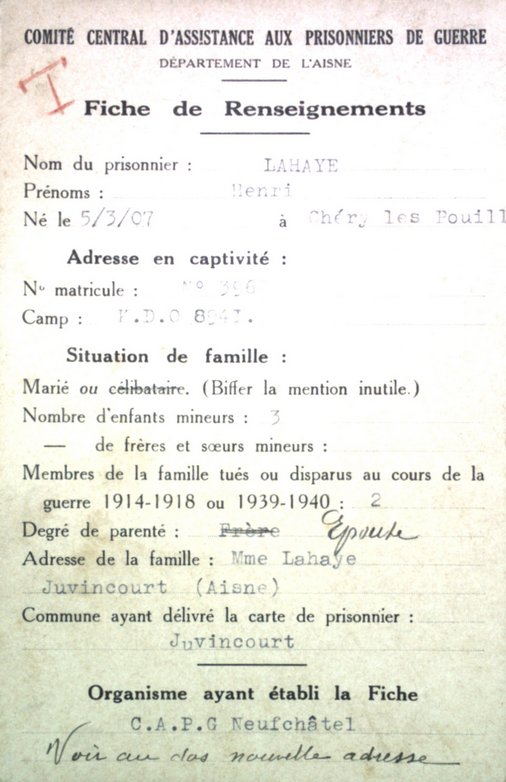 COMITÉ CENTRAL D'ASSISTANCE AUX PRISONNIERS DE GUERRE
DÉPARTEMENT DE L'AISNE
T
Fiche de Renseignements
Nom du prisonnier : LAHAYE
Prénoms : Henri
Né le 5/3/07 à Chéry les Pouill
Adresse en captivité :
Nº matricule : Nº
Camp :
Situation de famille :
Marié ou célibataire. (Biffer la mention inutile.)
Nombre d'enfants mineurs : 3
— de frères et sœurs mineurs :
Membres de la famille tués ou disparus au cours de la
guerre 1914-1918 ou 1939-1940 : 2
Degré de parenté : Frère Epouse
Adresse de la famille : Mme Lahaye
Juvincourt (Aisne)
Commune ayant délivré la carte de prisonnier :
Juvincourt
Organisme ayant établi la Fiche
C.A.P.G Neufchâtel
Voir au dos nouvelle adresse